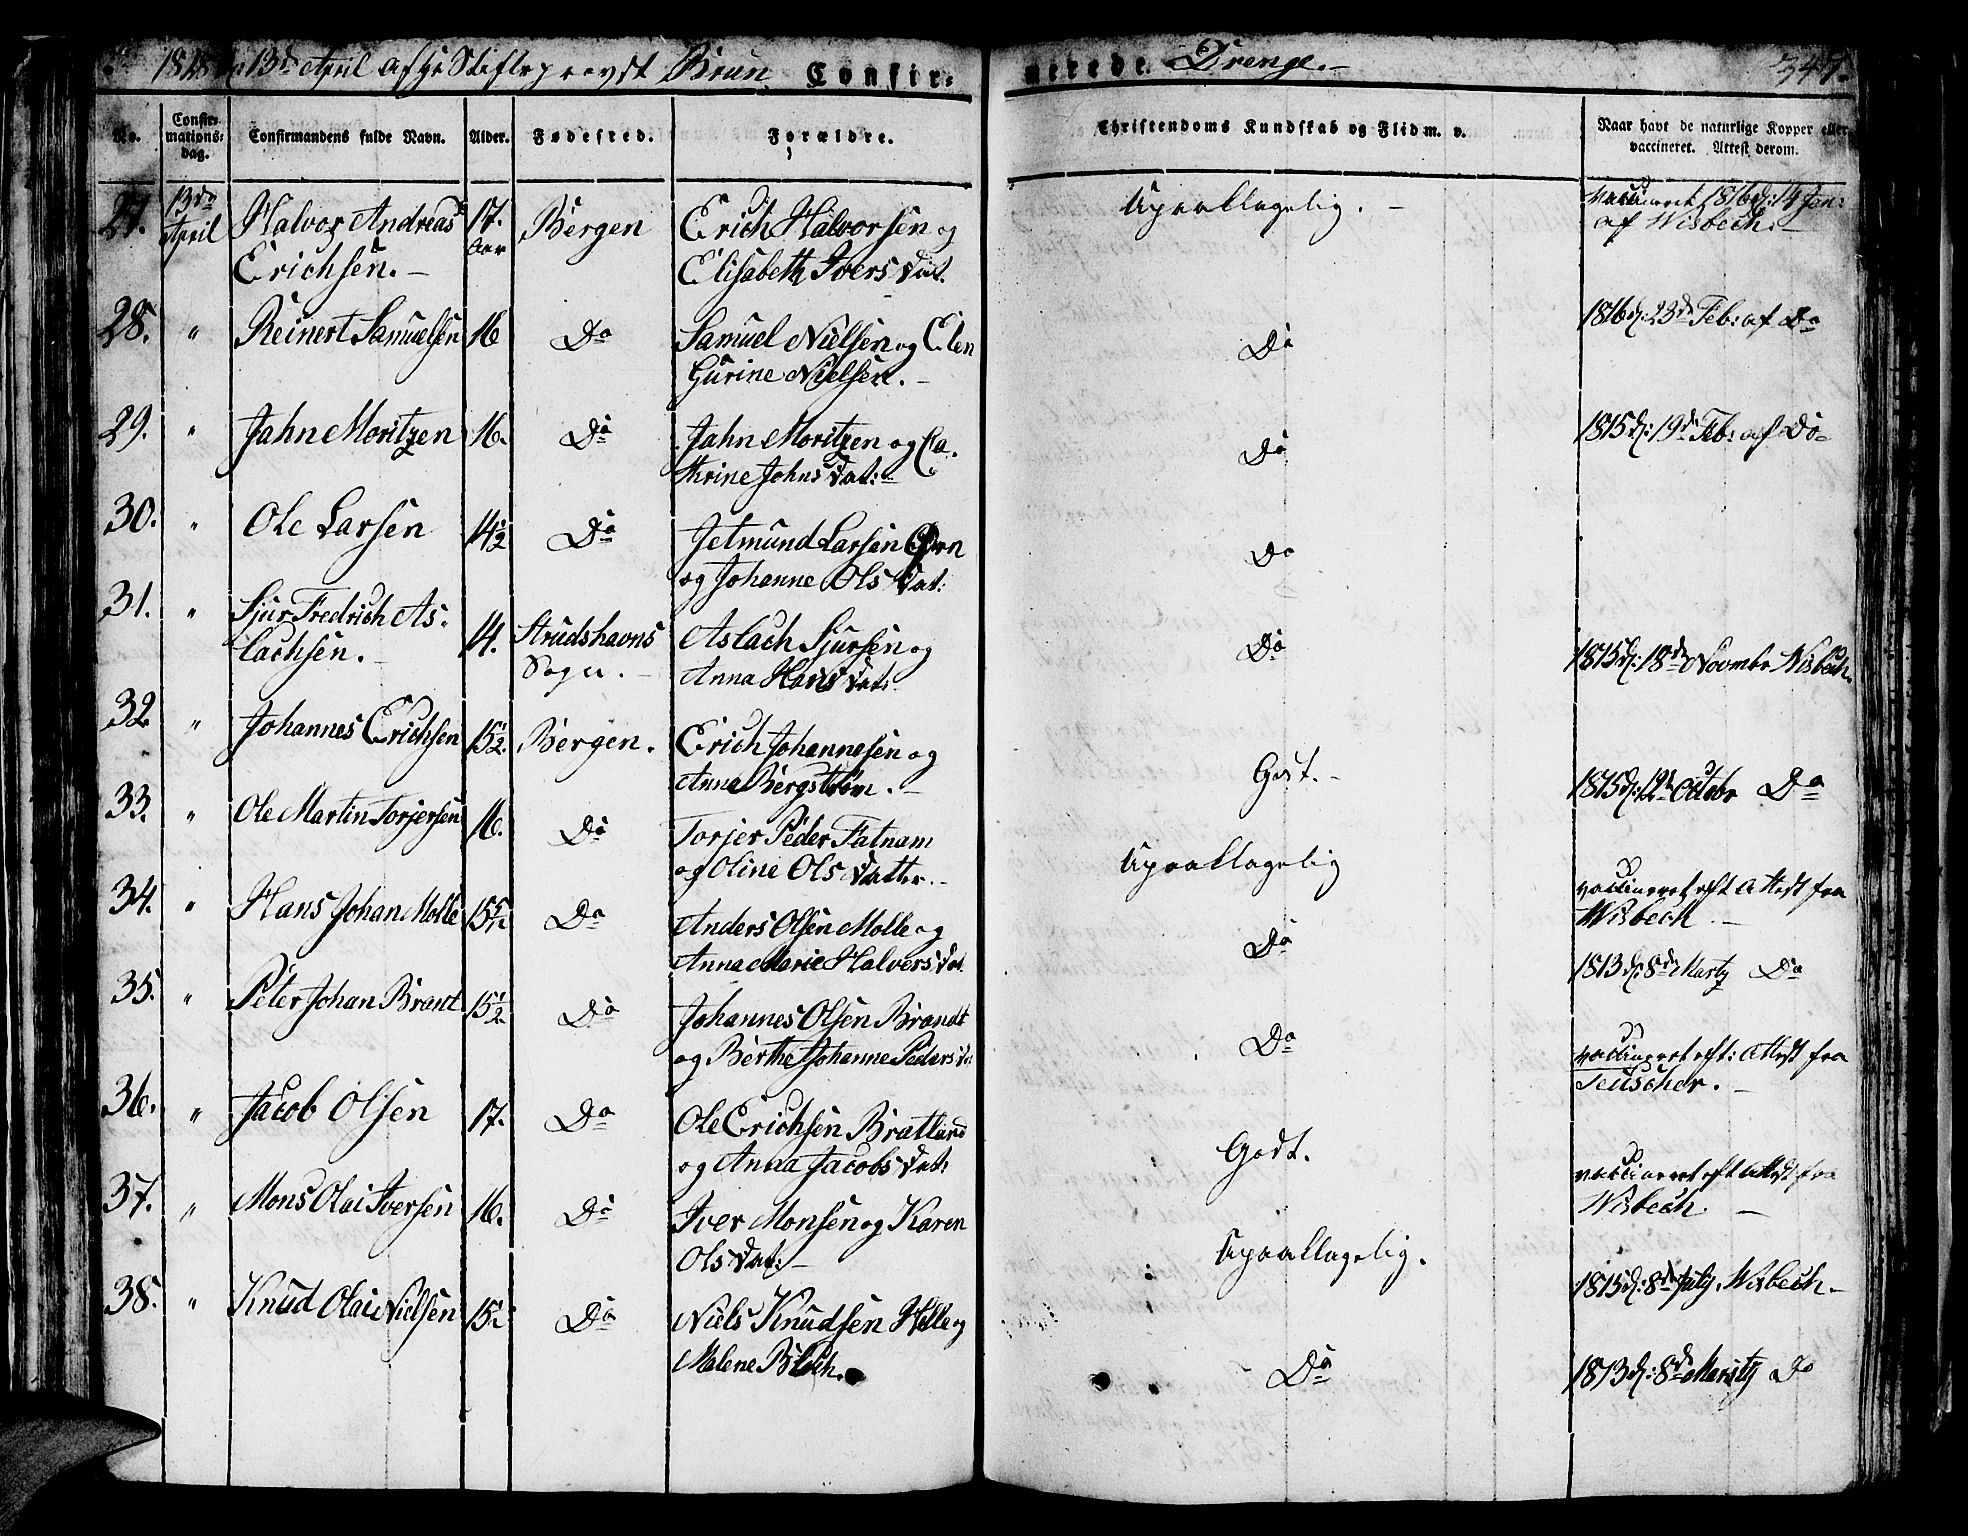 1828 d. 13de April af Hr Stiftsprovst Brun Confir-
merede Drenge.-
347.
No.
Confir-
mations-
dag.
Confirmandens fulde Navn.
Alder.
Fødested.
Forældre.
Christendoms Kundskab og Flid m. v.
Naar havt de naturlige Kopper eller
vaccineret. Attest derom.
27. 13de April Halvor Andreas 17. Aar Bergen Erich Halvorsen og Upaaklagelig. - vaccineret 1816 d: 14 Jan:
Erichsen.- Elisabeth Ivers Dat. af Wisbech.-
28. " Reinert Samuelsen 16 Do Samuel Nielsen og Elen Do 1816 d: 23de Feb: af Do
Gurine Nielsen.-
29. " Jahn Moritzen 16. Do Jahn Moritzen og Ca- Do 1815 d: 19de Feb: af Do
thrine Johns Dat:-
30. " Ole Larsen 14½ Do Jetmund Larsen Do
og Johanne Ols Dat:
31. " Sjur Fredrich As- 14. Strudshavns Aslach Sjursen og Do 1815 d: 18de Novmbr Wisbech.
lachsen.- Sogn.- Anna Hans Dat:
32. " Johannes Erichsen 15½. Bergen. Erich Johannesen og Godt.- 1815 d: 12te Octobr Do
Anna Bergstrøm.-
33. " Ole Martin Torjersen 16. Do Torjer Peder Fatnam Upaaklagelig vaccineret eft Attest fra
og Oline Ols Datter.- Wisbech.-
34. " Hans Johan Molle 15 Do Anders Olsen Molle og Do 1813 d: 8de Martz Do
Anna Marie Halvers Dat.
35. " Peter Johan Brant 15½. Do Johannes Olsen Brandt Do vaccineret eft: Attest fra
og Berthe Johanne Peders Da Teuscher.-
36. " Jacob Olsen 17. Do Ole Erichsen Bratland Godt. vaccineret eft Attest fra
og Anna Jacobs Dat: Wisbech.-
37. " Mons Olai Iversen 16. Do Iver Monsen og Karen Upaaklagelig. 1815 d: 8de July Wisbech.-
Ols Dat:-
38. " Knud Olai Nielsen 15 Do Niels Knudsen Helle og Do 1813 d: 8de Martz Do
Malene Bloch.